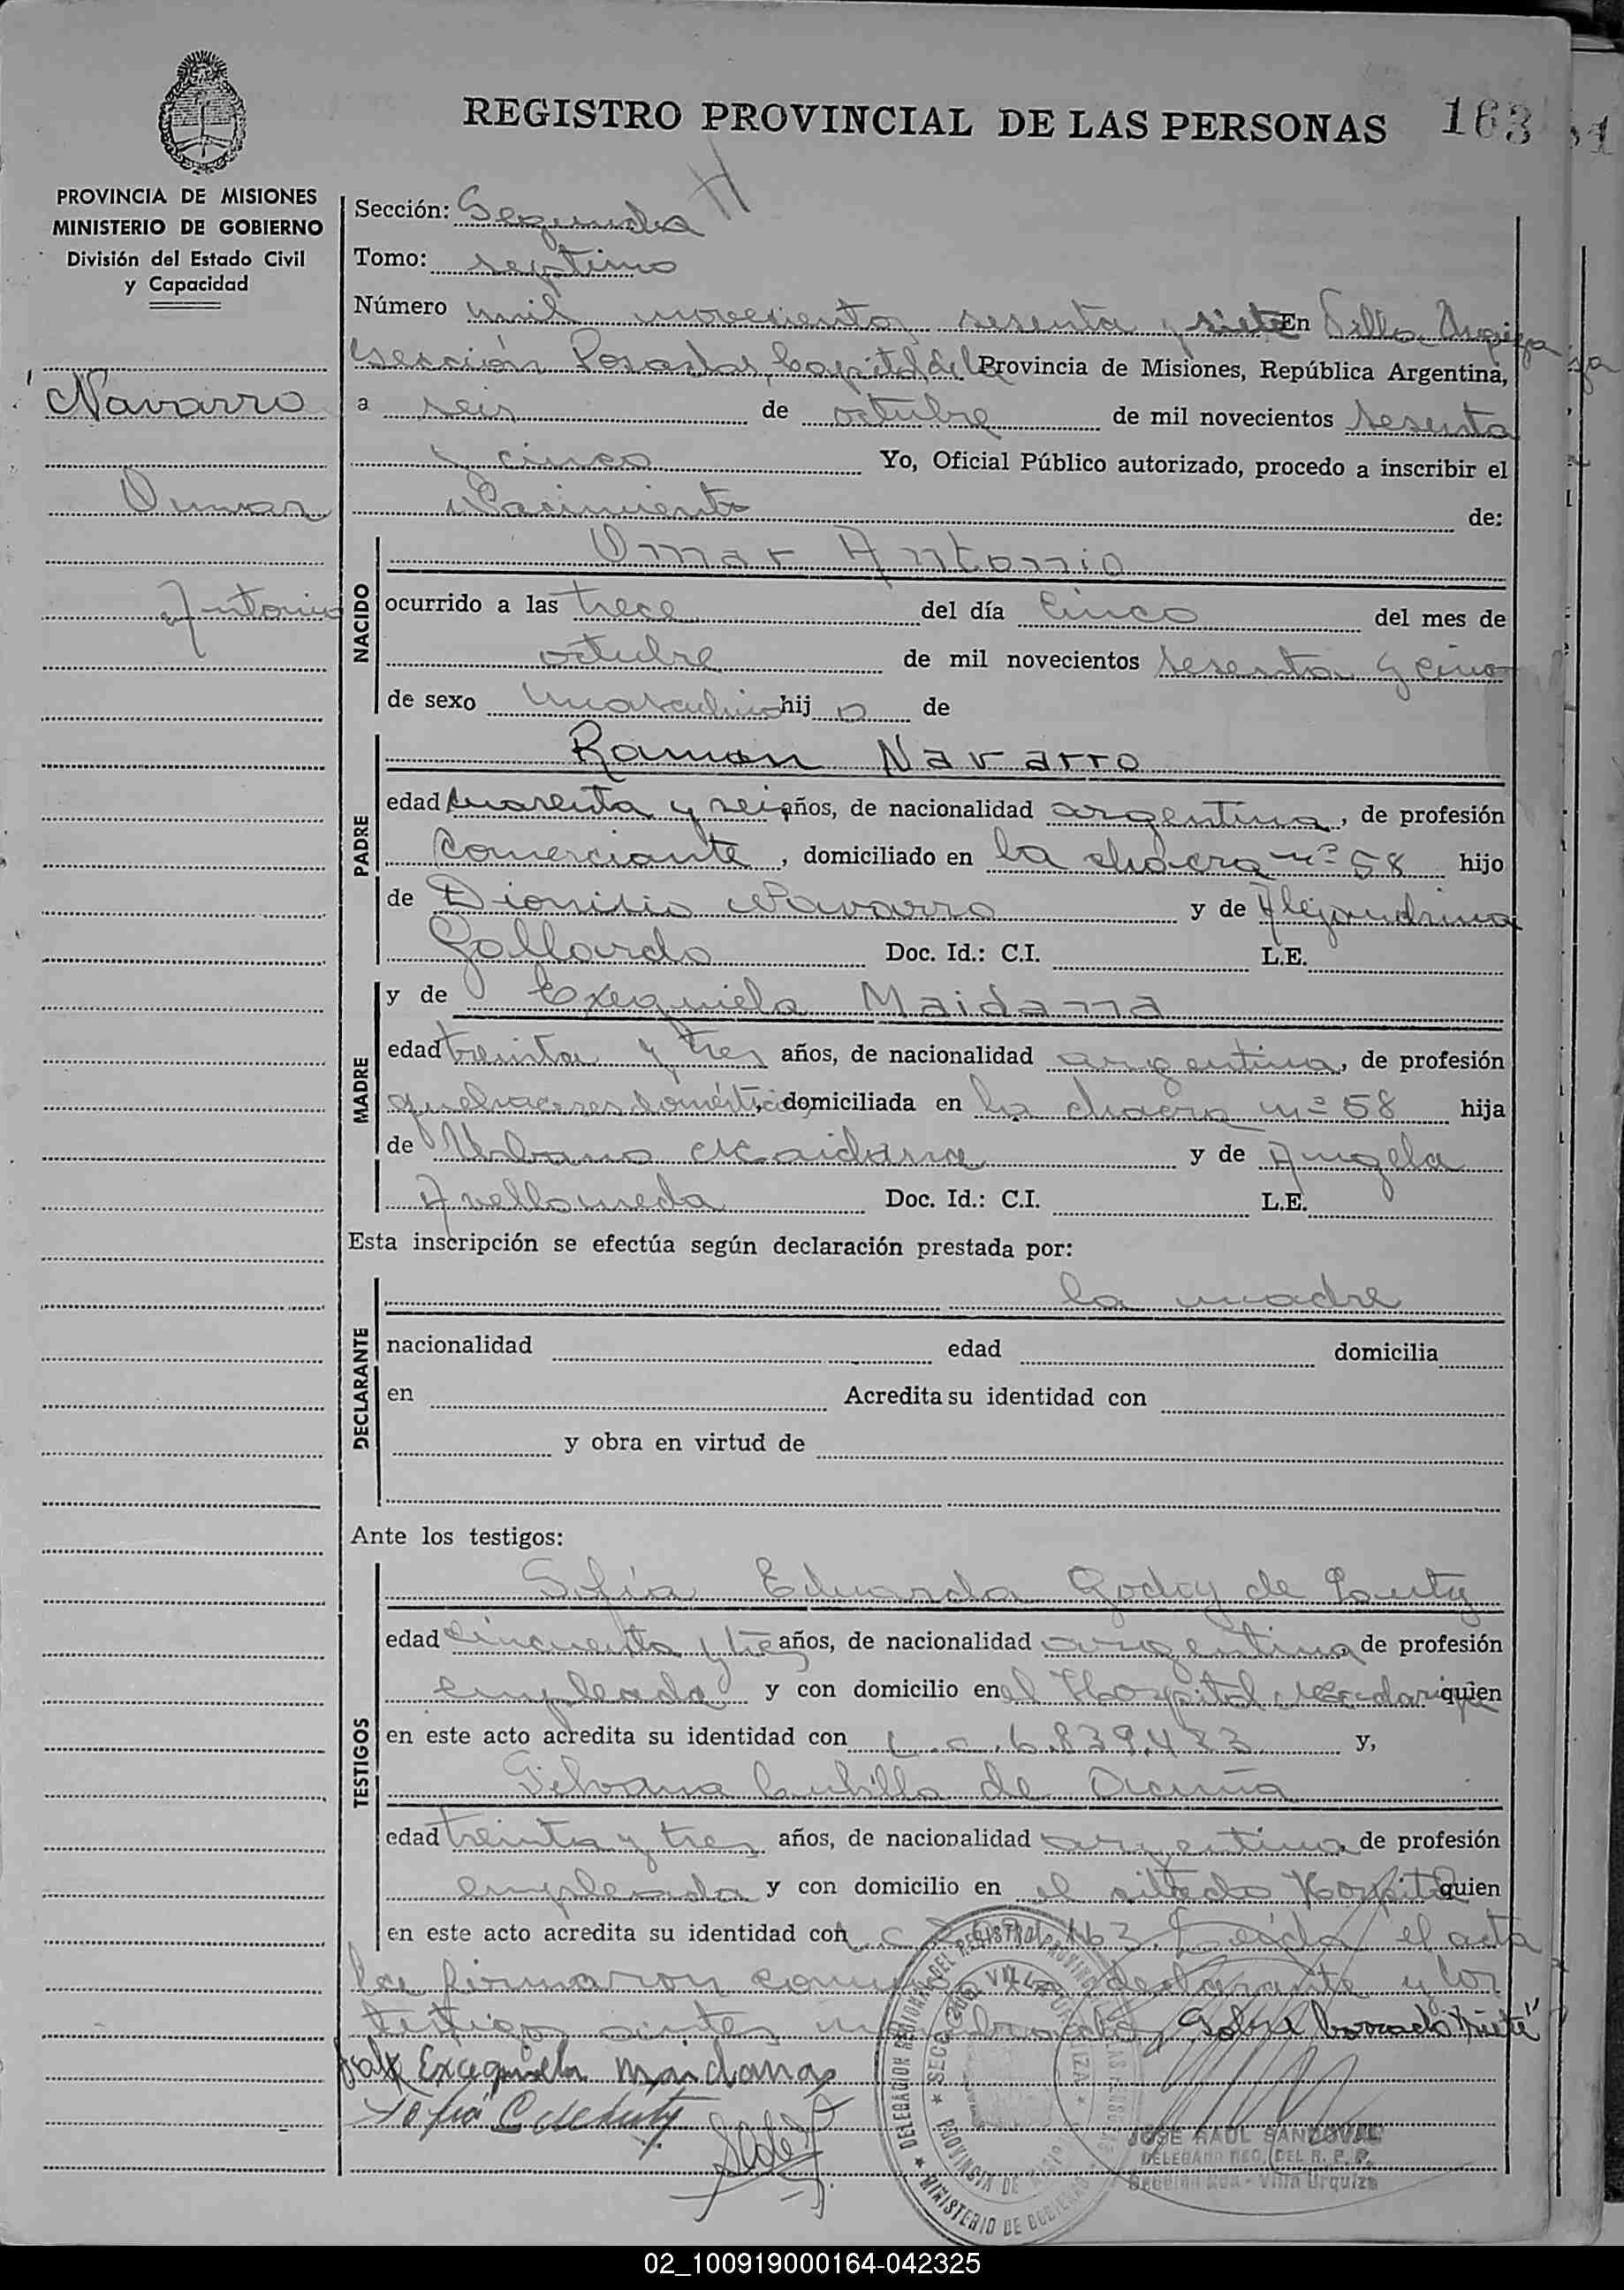 REGISTRO PROVINCIAL DE LAS PERSONAS 163
PROVINCIA DE MISIONES
MINISTERIO DE GOBIERNO
División del Estado Civil
y Capacidad
Navarro
Omar
Antonio
Sección: Segunda H
Tomo: septimo
Número mil novecientos sesenta y siete En Villa Urquiza
Sección Posadas, Capital de la Provincia de Misiones, República Argentina,
a seis de octubre de mil novecientos sesenta
y cinco Yo, Oficial Público autorizado, procedo a inscribir el
Nacimiento de:
NACIDO
Omar Antonio
ocurrido a las trece del día cinco del mes de
octubre de mil novecientos sesenta y cinco
de sexo masculino hijo de
PADRE
Ramon Navarro
edad cuarenta y seis años, de nacionalidad argentina, de profesión
Comerciante, domiciliado en la chacra nº 58 hijo
de Dionisio Navarro y de Alejandrina
Gallardo Doc. Id.: C.I. L.E.
MADRE
y de Exequiela Maidana
edad treinta y tres años, de nacionalidad argentina, de profesión
quehaceres domésticos, domiciliada en la chacra nº 58 hija
de Urbano Maidana y de Angela
Avellaneda Doc. Id.: C.I. L.E.
Esta inscripción se efectúa según declaración prestada por:
DECLARANTE
la madre
nacionalidad edad domicilia
en Acredita su identidad con
y obra en virtud de
Ante los testigos:
TESTIGOS
Sofía Eduarda Godoy de
edad cincuenta y tres años, de nacionalidad argentina de profesión
empleada y con domicilio en el Hospital quien
en este acto acredita su identidad con L.C. 6.839.433 y,
Silvana Cubilla de Acuña
edad treinta y tres años, de nacionalidad argentina de profesión
empleada y con domicilio en el citado Hospital quien
en este acto acredita su identidad con Leída el acta
la firmaron declarante y los
testigos antes Sobre borrado "siete"
vale Exequiela maidana
Sofia
DELEGACION REGIONAL DEL REGISTRO PROVINCIAL DE LAS PERSONAS
MINISTERIO DE GOBIERNO
PROVINCIA DE MISIONES
SECC. 2da VILLA URQUIZA
JOSE RAUL SANDOVAL
DELEGADO REG. DEL R. P. P.
Sección 2da - Villa Urquiza
02_100919000164-042325